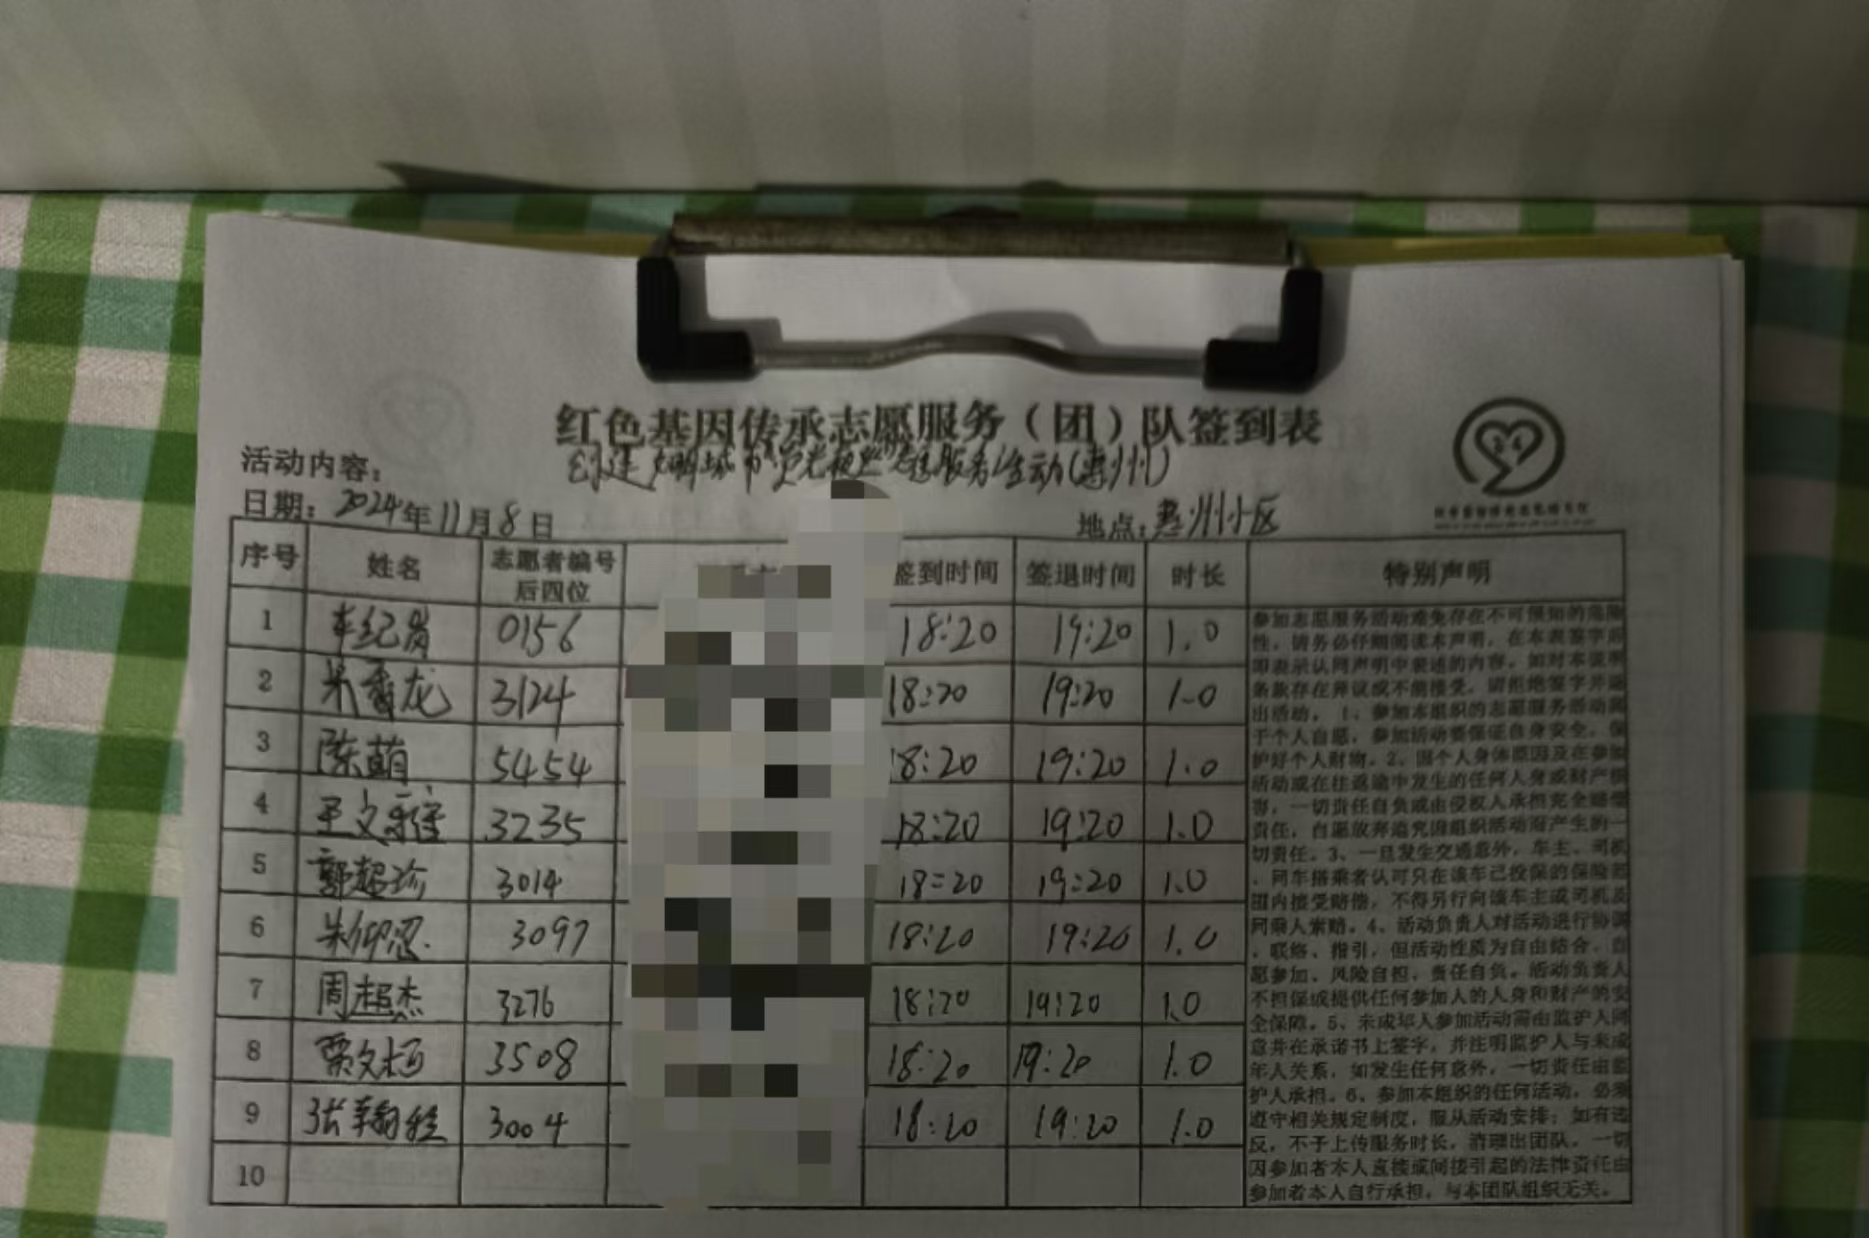 红色基因传承志愿服务（团）队签到表
活动内容： 创建文明城市"荧光夜巡"志愿服务活动(惠州)
日期：2024年11月8日 地点：惠州小区
序号 姓名 志愿者编号后四位 签到时间 签退时间 时长 特别声明
1 0156 18:20 19:20 1.0
2 龙 3124 18:20 19:20 1.0
3 陈萌 5454 18:20 19:20 1.0
4 王文雅 3235 18:20 19:20 1.0
5 郭超珍 3014 18:20 19:20 1.0
6 朱仰恩 3097 18:20 19:20 1.0
7 周超杰 3276 18:20 19:20 1.0
8 文 3508 18:20 19:20 1.0
9 张翰 3004 18:20 19:20 1.0
10
参加志愿服务活动难免存在不可预知的危险
性，请务必仔细阅读本声明，在本表签字后
即表示认同声明中表述的内容。如对本说明
条款存在异议或不能接受，请拒绝签字并退
出活动。1、参加本组织的志愿服务活动属
于个人自愿，参加活动要保证自身安全，保
护好个人财物。2、因个人身体原因及在参加
活动或在往返途中发生的任何人身或财产损
害，一切责任自负或由侵权人承担完全赔偿
责任，自愿放弃追究因组织活动而产生的一
切责任。3、一旦发生交通意外，车主、司机
、同车搭乘者认可只在该车已投保的保险范
围内接受赔偿，不得另行向该车主或司机及
同乘人索赔。4、活动负责人对活动进行协调
、联络、指引，但活动性质为自由结合、自
愿参加、风险自担，责任自负。活动负责人
不担保或提供任何参加人的人身和财产的安
全保障。5、未成年人参加活动需由监护人同
意并在承诺书上签字，并注明监护人与未成
年人关系，如发生任何意外，一切责任由监
护人承担。6、参加本组织的任何活动，必须
遵守相关规定制度，服从活动安排；如有违
反，不予上传服务时长，清理出团队。一切
因参加者本人直接或间接引起的法律责任由
参加者本人自行承担，与本团队组织无关。